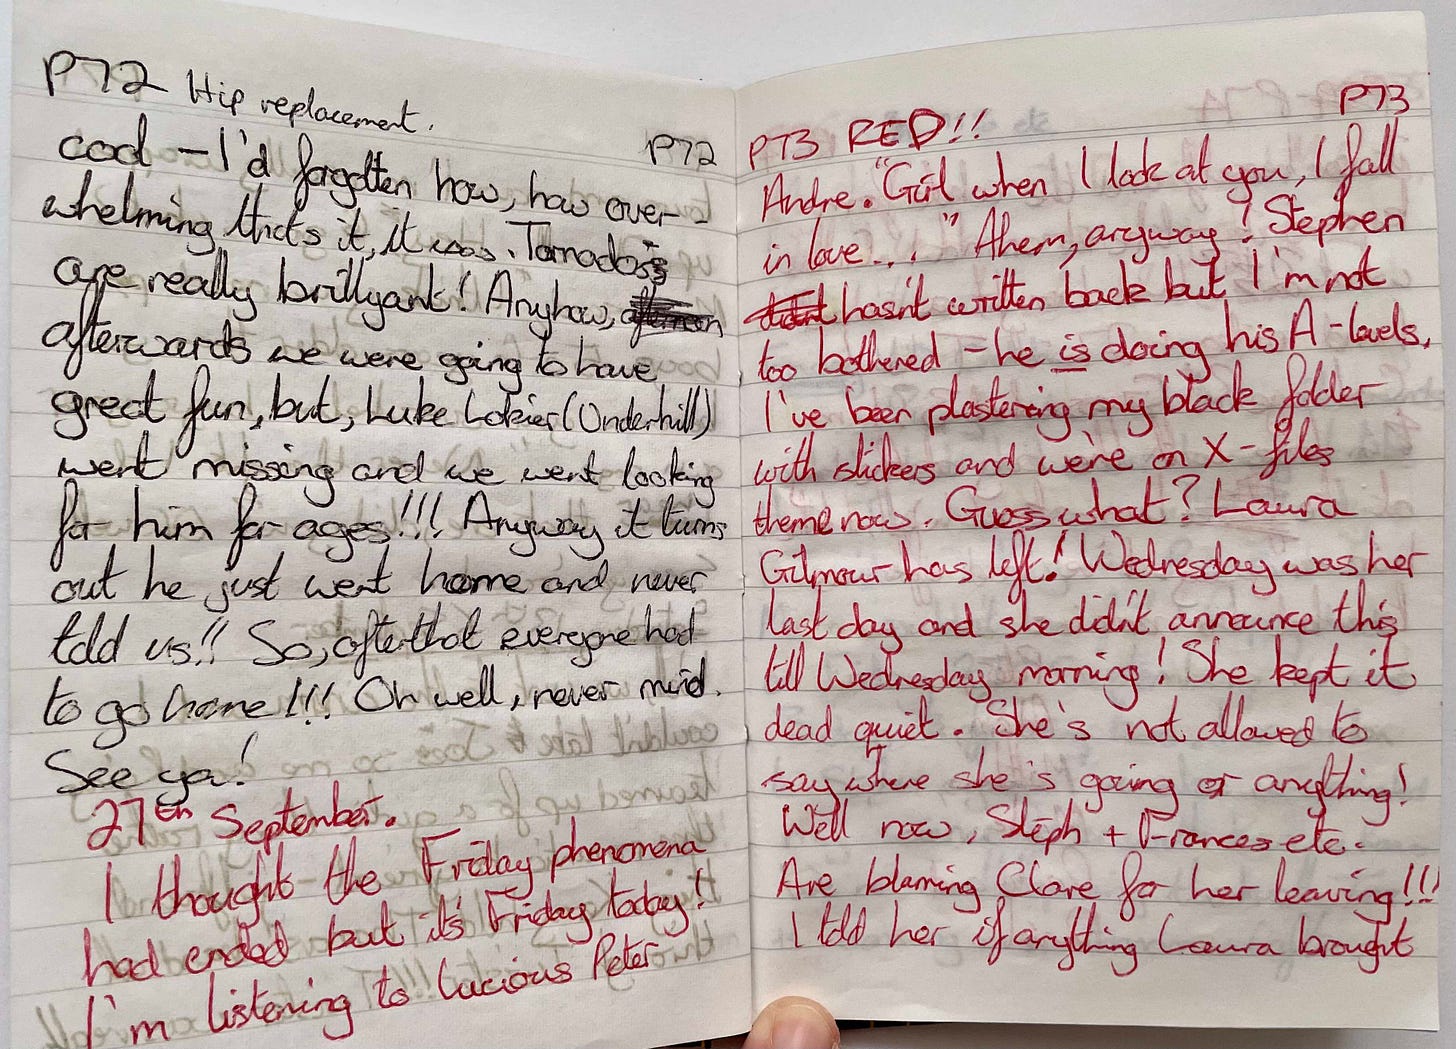 P72 Hip replacement.
P72
cool – I'd forgotten how, how over-
whelming thats it, it was. Tornados
are really brillyant! Anyhow,
afterwards we were going to have
great fun, but, Luke Lokier (Underhill)
went missing and we went looking
for him for ages!!! Anyway it turns
out he just went home and never
told us!! So, after that everyone had
to go home!!! Oh well, never mind.
See ya!
27th September.
I thought the Friday phenomena
had ended but it's Friday today!!
I'm listening to Lucious Peter
P73
P73 RED!!
Andre. "Girl when I look at you, I fall
in love..." Ahem, anyway! Stephen
didn't hasn't written back but I'm not
too bothered – he is doing his A-levels.
I've been plastering my black folder
with stickers and we're on X-files
theme now. Guess what? Laura
Gilmour has left! Wednesday was her
last day and she didn't announce this
till Wednesday morning! She kept it
dead quiet. She's not allowed to
say where she's going or anything!
Well now, Steph + Frances etc.
Are blaming Clare for her leaving!!!
I told her if anything Laura brought